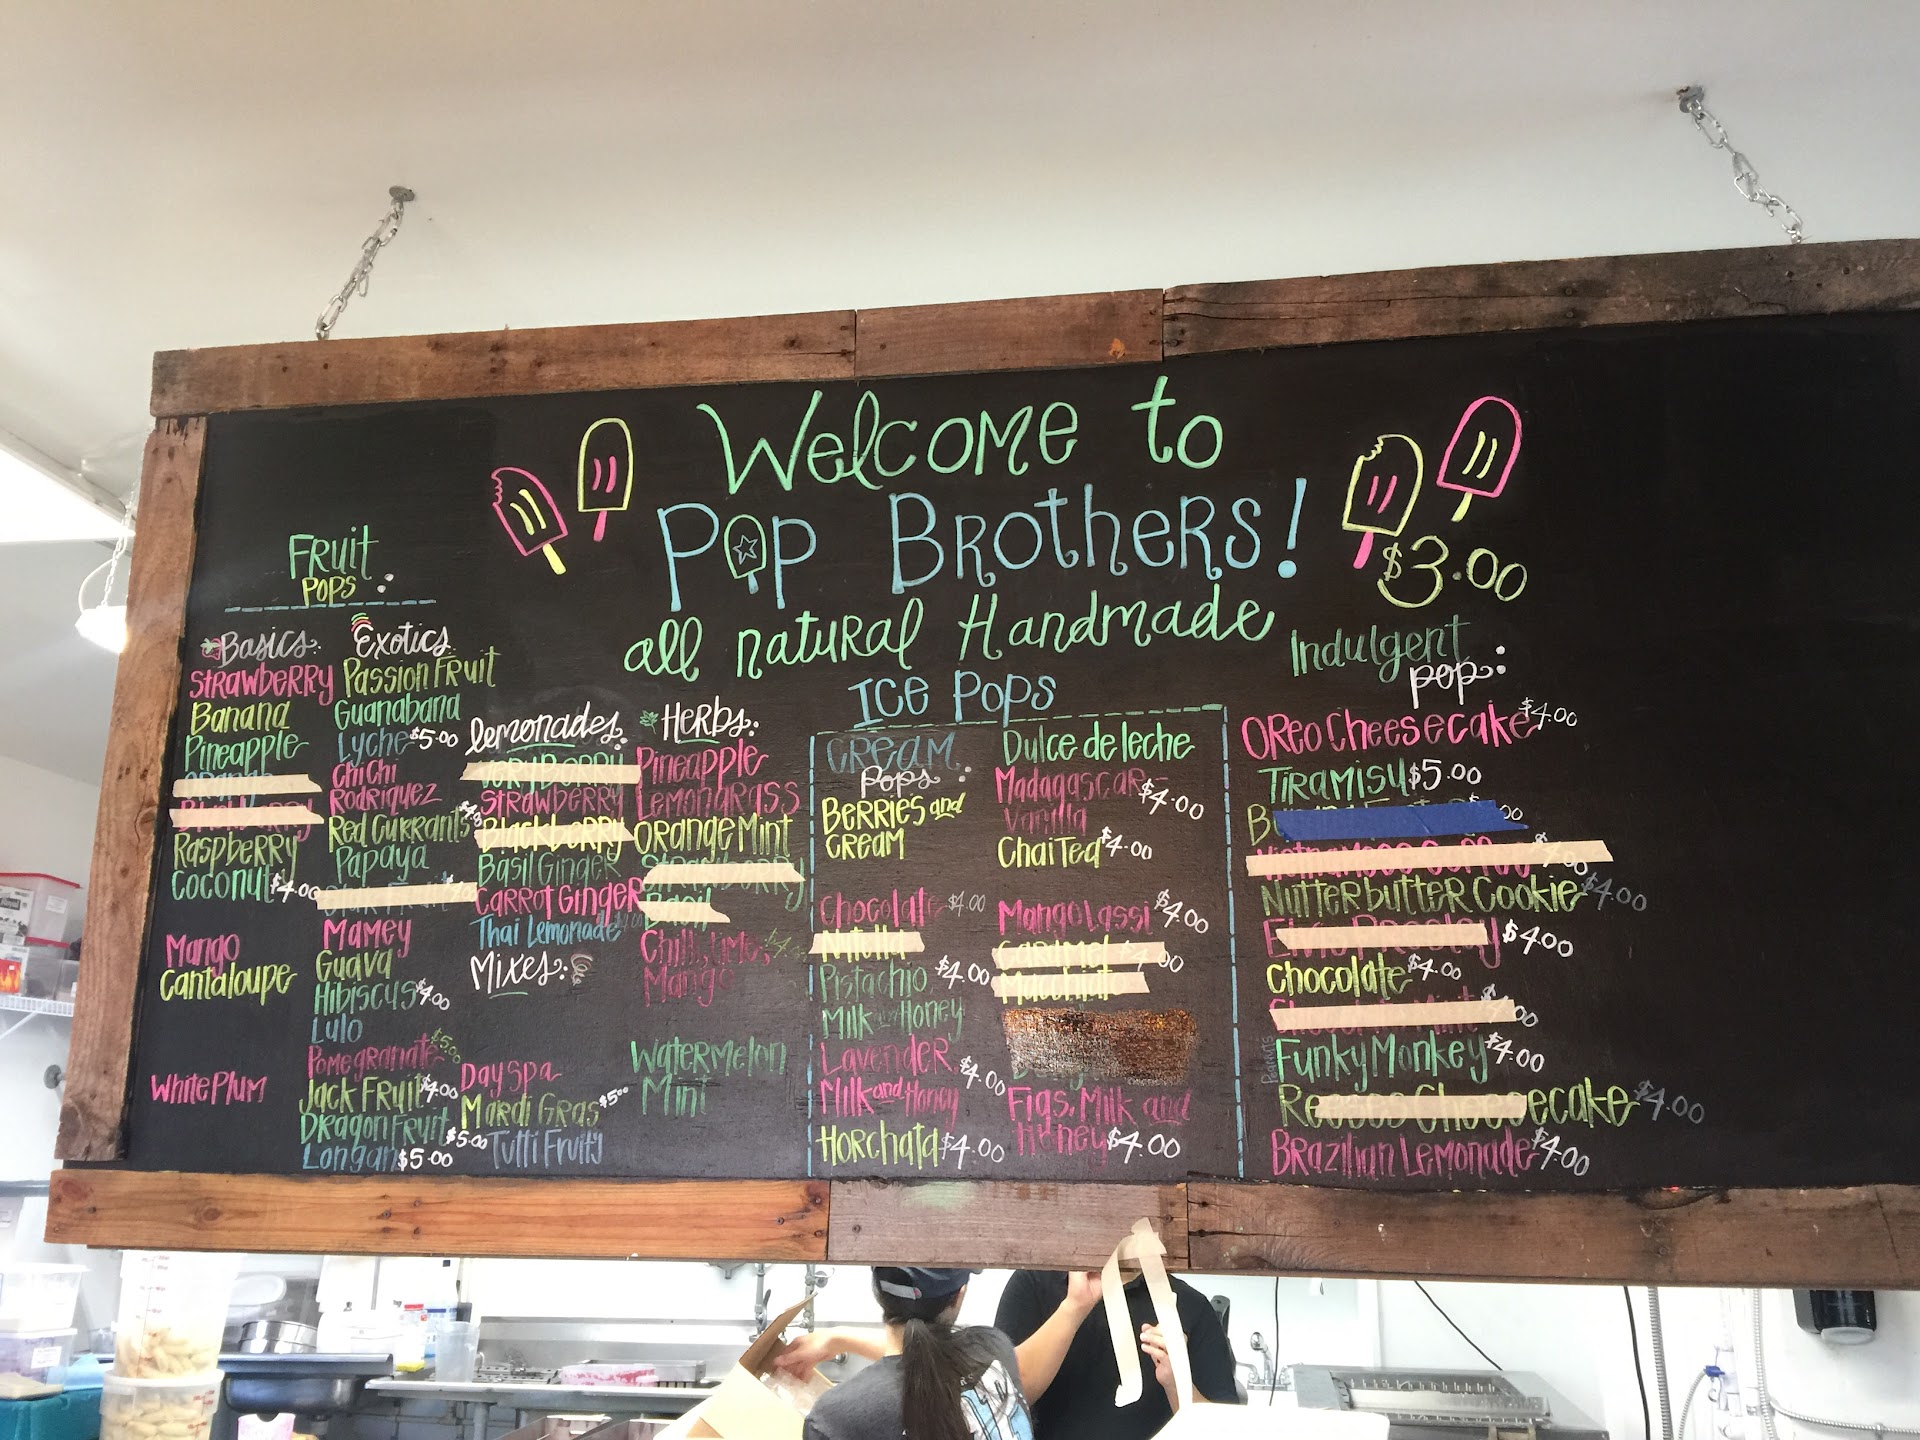 Welcome to
Pop Brothers!
all natural Handmade
Ice Pops
$3.00
Fruit
Pops:
Basics:
Strawberry
Banana
Pineapple
Raspberry
Coconut $4.00
Mango
Cantaloupe
White Plum
Exotics
Passion Fruit
Guanabana
Lyche $5.00
Chi Chi
Rodriquez
Red Currants
Papaya
Mamey
Guava
Hibiscus $4.00
Lulo
Pomegranate $5.00
Jack Fruit $4.00
Dragon Fruit $5.00
Longan $5.00
Lemonades:
Very Berry
Strawberry
Blackberry
Basil Ginger
Carrot Ginger
Thai Lemonade
Mixes:
Day Spa
Mardi Gras $5.00
Tutti Fruiti
Herbs:
Pineapple
Lemongrass
Orange Mint
Strawberry
Basil
Chili, Lime,
Mango
Watermelon
Mint
Cream
Pops:
Berries and
Cream
Chocolate $4.00
Nutella
Pistachio $4.00
Milk and Honey
Lavender
Milk and Honey $4.00
Horchata $4.00
Dulce de leche
Madagascar
Vanilla $4.00
Chai Tea $4.00
Mango Lassi $4.00
Caramel
Macchiato
Figs, Milk and
Honey $4.00
Indulgent
pop:
Oreo Cheesecake $4.00
Tiramisu $5.00
Nutterbutter Cookie $4.00
$4.00
Chocolate $4.00
Peanuts
Funky Monkey $4.00
ecake $4.00
Brazilian Lemonade $4.00